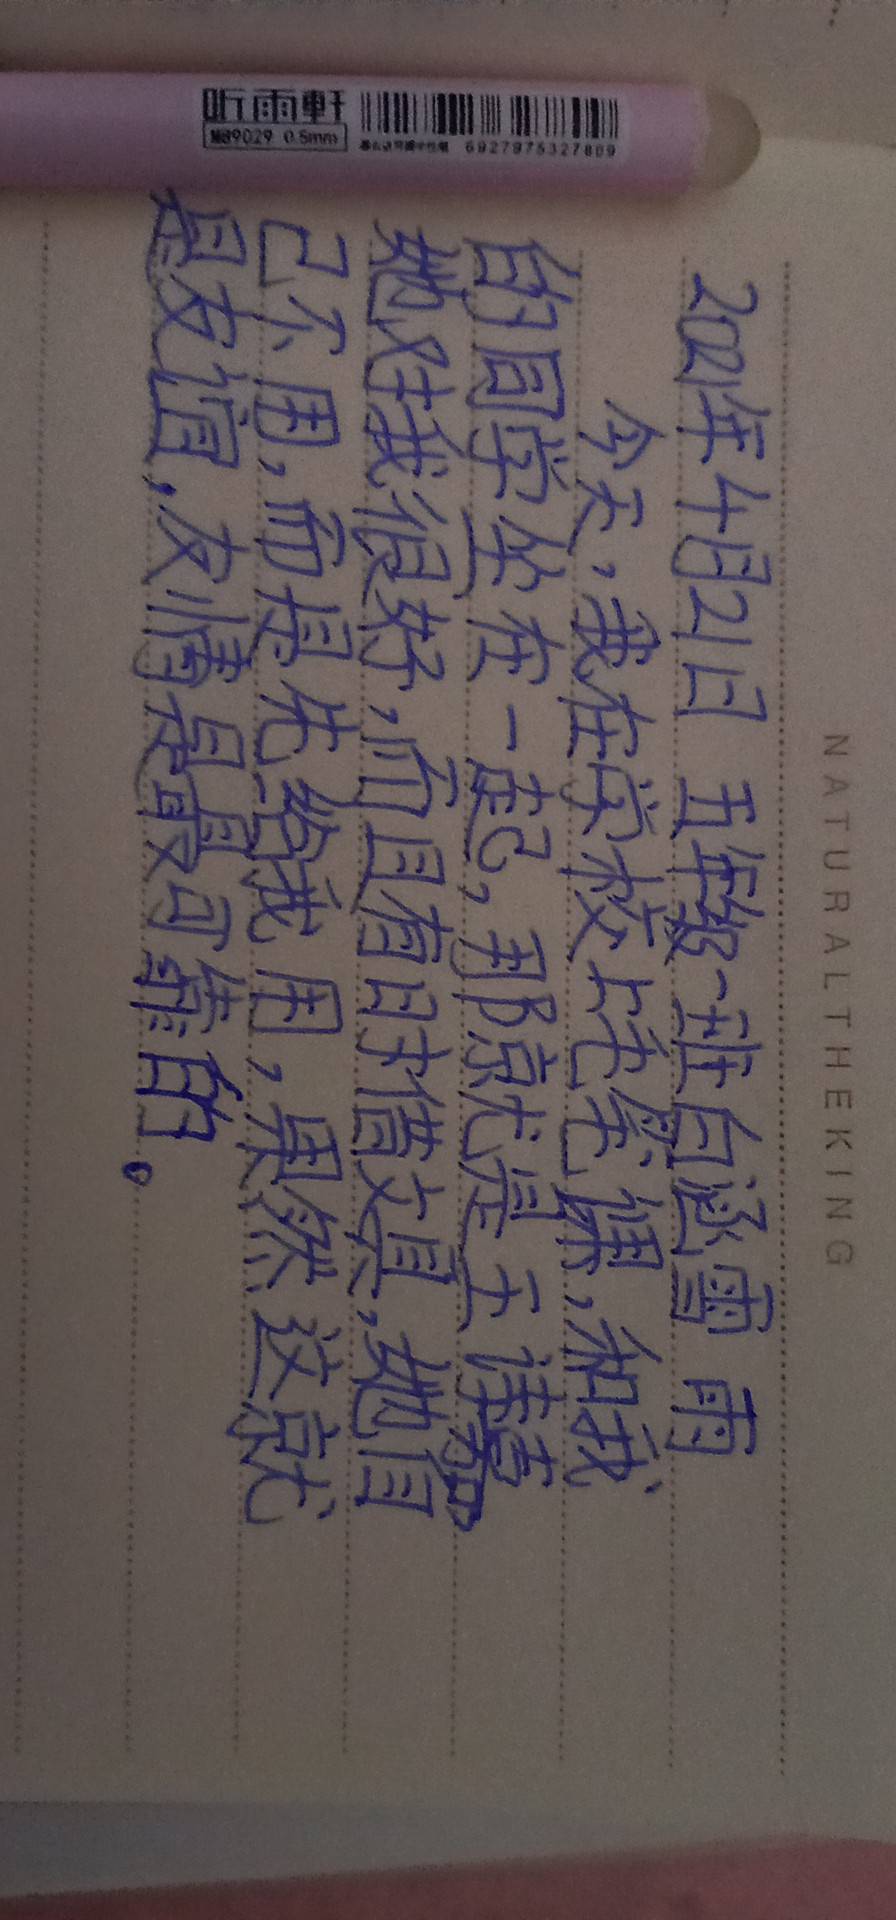 听雨軒
M89029 0.5mm
6927975327809
NATURALTHEKING
2021年4月21日 五年级一班白涵雪 雨
今天，我在学校上毛笔课，和我
的同学坐在一起，那就是王
她对我很好，而且有时借文具，她自
己不用，而是先给我用，果然这就
是友谊，友情是最可靠的。